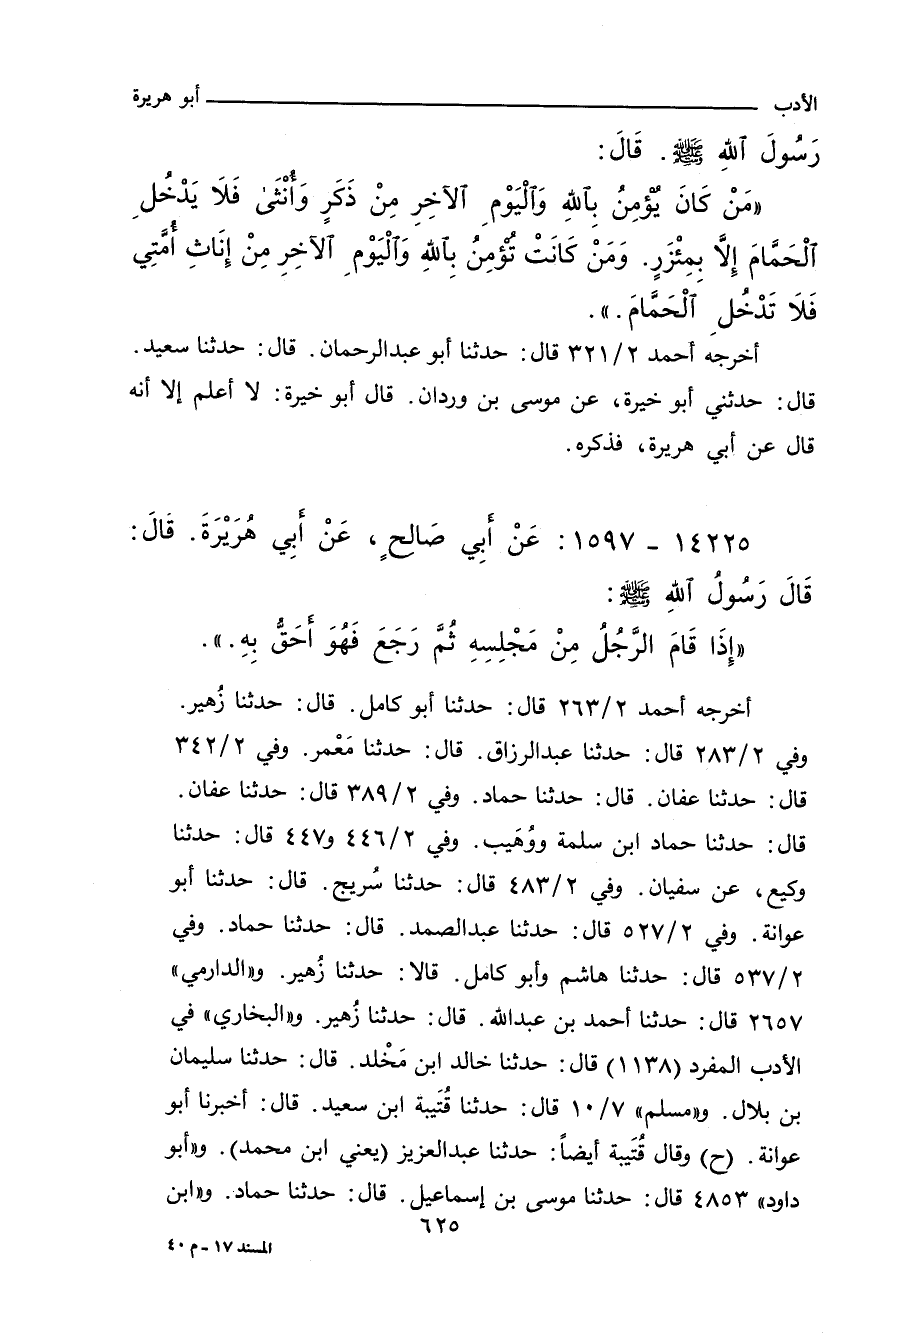 الأدب ــــــــ أبو هريرة
رَسُولَ ٱللهِ ﷺ. قَالَ:
«مَنْ كَانَ يُؤْمِنُ بِٱللهِ وَٱلْيَوْمِ ٱلآخِرِ مِنْ ذَكَرٍ وَأُنْثَىٰ فَلَا يَدْخُلِ
ٱلْحَمَّامَ إِلَّا بِمِئْزَرٍ. وَمَنْ كَانَتْ تُؤْمِنُ بِٱللهِ وَٱلْيَوْمِ ٱلآخِرِ مِنْ إِنَاثِ أُمَّتِي
فَلَا تَدْخُلِ ٱلْحَمَّامَ.».
أخرجه أحمد ٣٢١/٢ قال: حدثنا أبو عبدالرحمان. قال: حدثنا سعيد.
قال: حدثني أبو خيرة، عن موسى بن وردان. قال أبو خيرة: لا أعلم إلا أنه
قال عن أبي هريرة، فذكره.
١٤٢٢٥ - ١٥٩٧: عَنْ أَبِي صَالِحٍ، عَنْ أَبِي هُرَيْرَةَ. قَالَ:
قَالَ رَسُولُ ٱللهِ ﷺ:
«إِذَا قَامَ الرَّجُلُ مِنْ مَجْلِسِهِ ثُمَّ رَجَعَ فَهُوَ أَحَقُّ بِهِ.».
أخرجه أحمد ٢٦٣/٢ قال: حدثنا أبو كامل. قال: حدثنا زُهير.
وفي ٢٨٣/٢ قال: حدثنا عبدالرزاق. قال: حدثنا مَعْمر. وفي ٣٤٢/٢
قال: حدثنا عفان. قال: حدثنا حماد. وفي ٣٨٩/٢ قال: حدثنا عفان.
قال: حدثنا حماد ابن سلمة ووُهَيب. وفي ٤٤٦/٢ و٤٤٧ قال: حدثنا
وكيع، عن سفيان. وفي ٤٨٣/٢ قال: حدثنا سُريج. قال: حدثنا أبو
عوانة. وفي ٥٢٧/٢ قال: حدثنا عبدالصمد. قال: حدثنا حماد. وفي
٥٣٧/٢ قال: حدثنا هاشم وأبو كامل. قالا: حدثنا زُهير. و«الدارمي»
٢٦٥٧ قال: حدثنا أحمد بن عبدالله. قال: حدثنا زُهير. و«البخاري» في
الأدب المفرد (١١٣٨) قال: حدثنا خالد ابن مَخْلد. قال: حدثنا سليمان
بن بلال. و«مسلم» ١٠/٧ قال: حدثنا قُتَيبة ابن سعيد. قال: أخبرنا أبو
عوانة. (ح) وقال قُتَيبة أيضاً: حدثنا عبدالعزيز (يعني ابن محمد). و«أبو
داود» ٤٨٥٣ قال: حدثنا موسى بن إسماعيل. قال: حدثنا حماد. و«ابن
٦٢٥
المسند ١٧ - م ٤٠